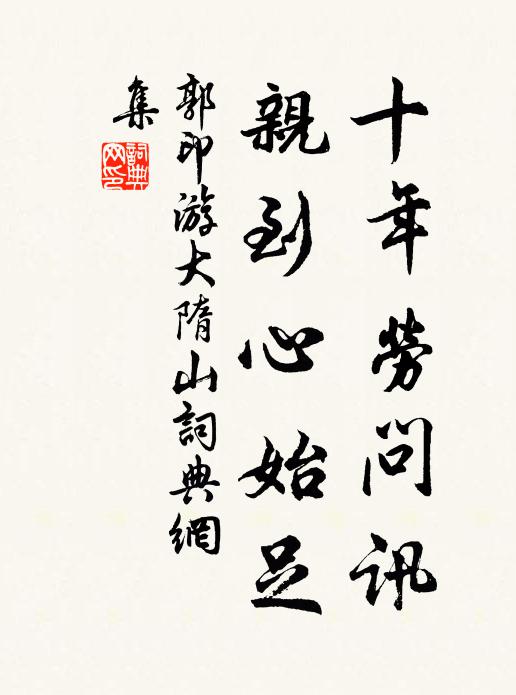 十年勞問訊
親到心始足
郭印游大隋山詞典網
集
詞典
网印